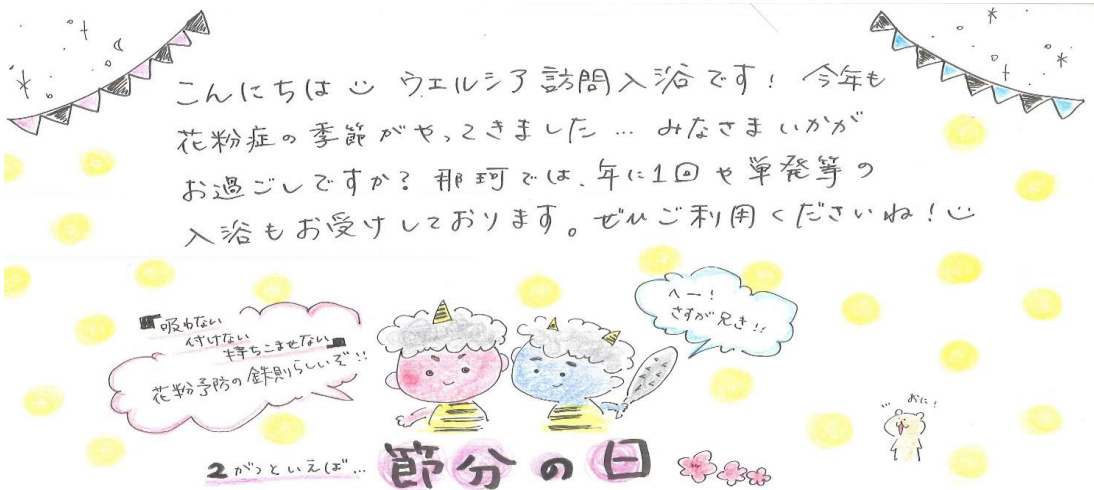 こんにちは ウエルシア訪問入浴です! 今年も
花粉症の季節がやってきました… みなさまいかが
お過ごしですか? 那珂では、年に1回や単発等の
入浴もお受けしております。ぜひご利用くださいね!
「吸わない
付けない
持ちこませない」
花粉予防の鉄則らしいぞ!!
へー!
さすが兄き!!
おに!
2がつといえば…
節分の日